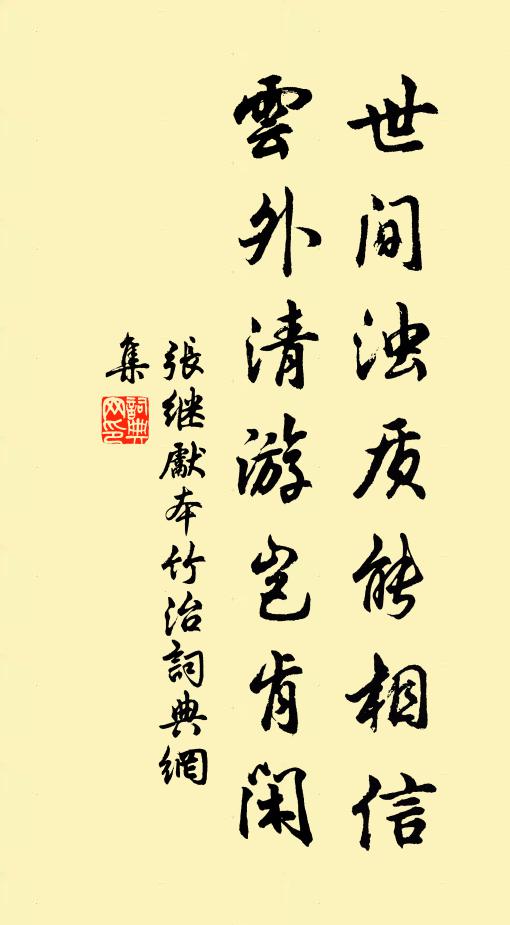 世间浊质能相信
雲外清游岂肯闲
張继獻本竹治詞典網
集
詞典網印